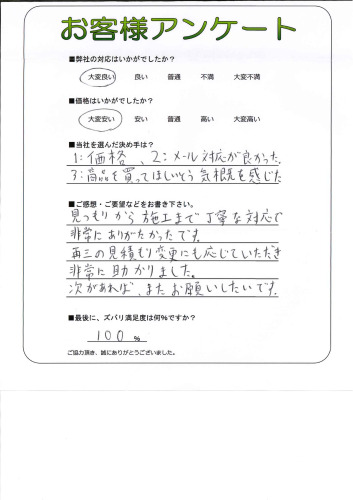 お客様アンケート
■弊社の対応はいかがでしたか?
大変良い 良い 普通 不満 大変不満
■価格はいかがでしたか?
大変安い 安い 普通 高い 大変高い
■当社を選んだ決め手は?
1:価格、2:メール対応が良かった.
3:商品を買ってほしいとう気根気を感じた
■ご感想・ご要望などをお書き下さい。
見つもりから施工まで丁寧な対応で
非常にありがたかったです。
再三の見積もり変更にも応じていただき
非常に助かりました。
次があれば、またお願いしたいです.
■最後に、ズバリ満足度は何%ですか?
100 %
ご協力頂き、誠にありがとうございました。